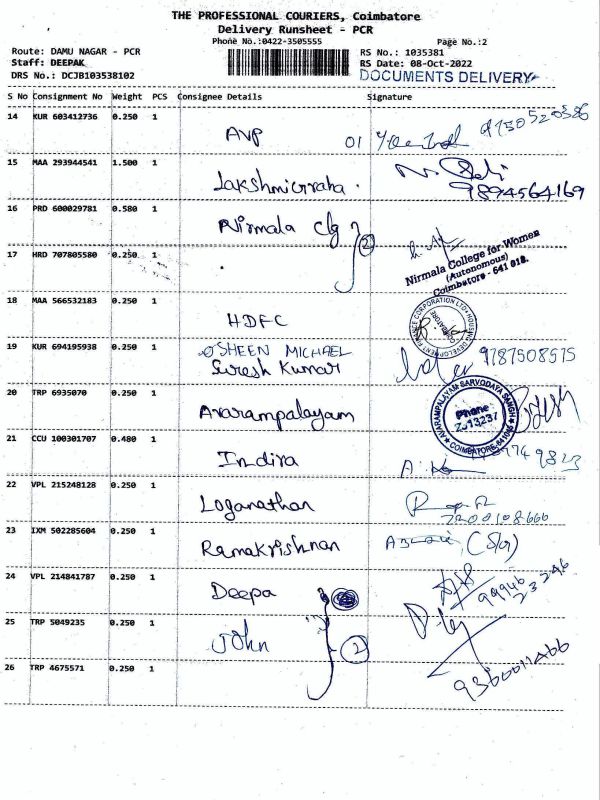 THE PROFESSIONAL COURIERS, Coimbatore
Delivery Runsheet - PCR
Phone No.:0422-3505555 Page No.:2
Route: DAMU NAGAR - PCR RS No.: 1035381
Staff: DEEPAK RS Date: 08-Oct-2022
DRS No.: DCJB103538102 DOCUMENTS DELIVERY
S No Consignment No Weight PCS Consignee Details Signature
14 KUR 603412736 0.250 1 AVP 01
15 MAA 293944541 1.500 1 9894564169
16 PRD 600029781 0.580 1 Nirmala clg 2
17 HRD 707805580 0.250 1
Nirmala College for Women
(Autonomous)
Coimbatore - 641 018.
18 MAA 566532183 0.250 1 HDFC
HOUSING DEVELOPMENT FINANCE CORPORATION LTD
COIMBATORE
19 KUR 694195938 0.250 1 OSHEEN MICHAEL 9787508575
Suresh Kumar
20 TRP 6935070 0.250 1 Avarampalayam
AVARAMPALAYAM SARVODAYA SANGH
Phone
COIMBATORE-641006
21 CCU 100301707 0.480 1 Indira
22 VPL 215248128 0.250 1 Loganathan
23 IXM 502285604 0.250 1 Ramakrishnan (S/o)
24 VPL 214841787 0.250 1 Deepa 99946
23246
25 TRP 5049235 0.250 1 John 2
26 TRP 4675571 0.250 1